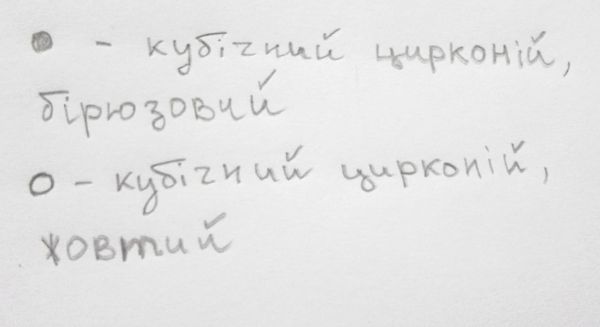 ● - кубічний цирконій,
бірюзовий
○ - кубічний цирконій,
жовтий